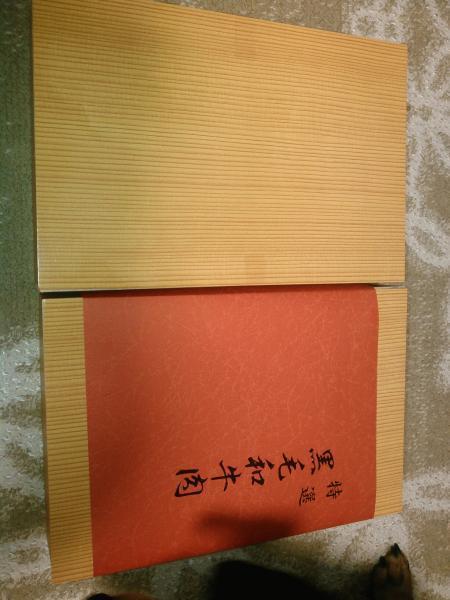 特選
黒毛和牛肉